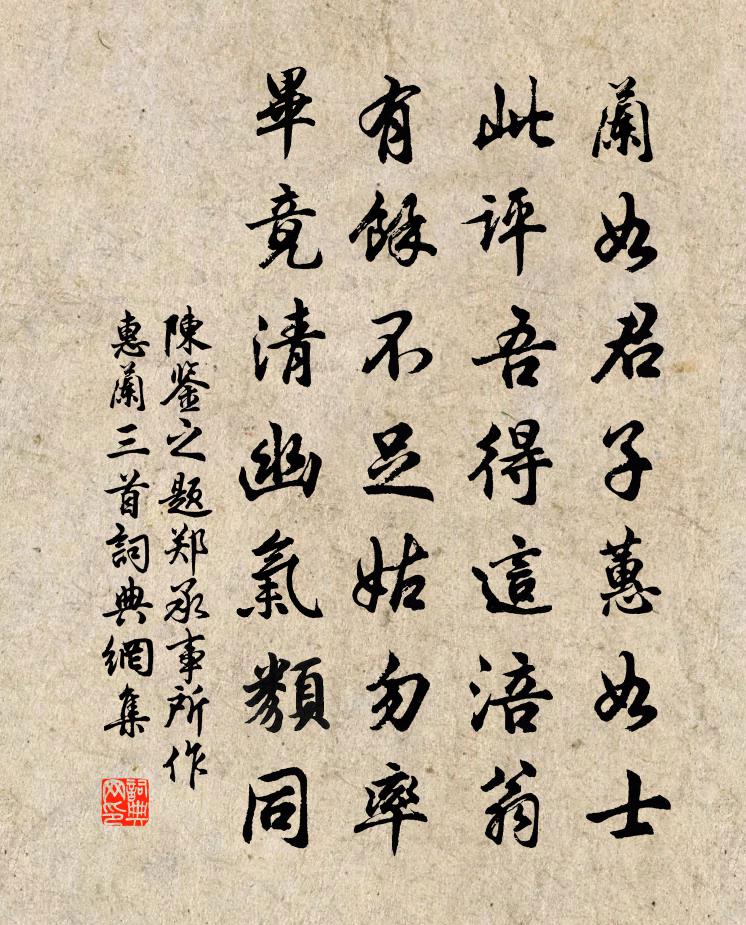 蘭如君子蕙如士
此評吾得這涪翁
有餘不足姑勿率
畢竟清幽氣類同
陳鉴之题郑承事所作
惠蘭三首詞典網集
詞典网印